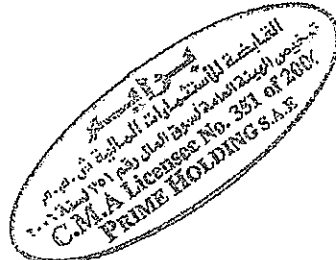 برايم
القابضة للاستثمارات المالية ش.م.م
ترخيص الهيئة العامة لسوق المال رقم ٣٥١ لسنة ٢٠٠٦
C.M.A Licenses No. 351 of 200
PRIME HOLDING S.A.E